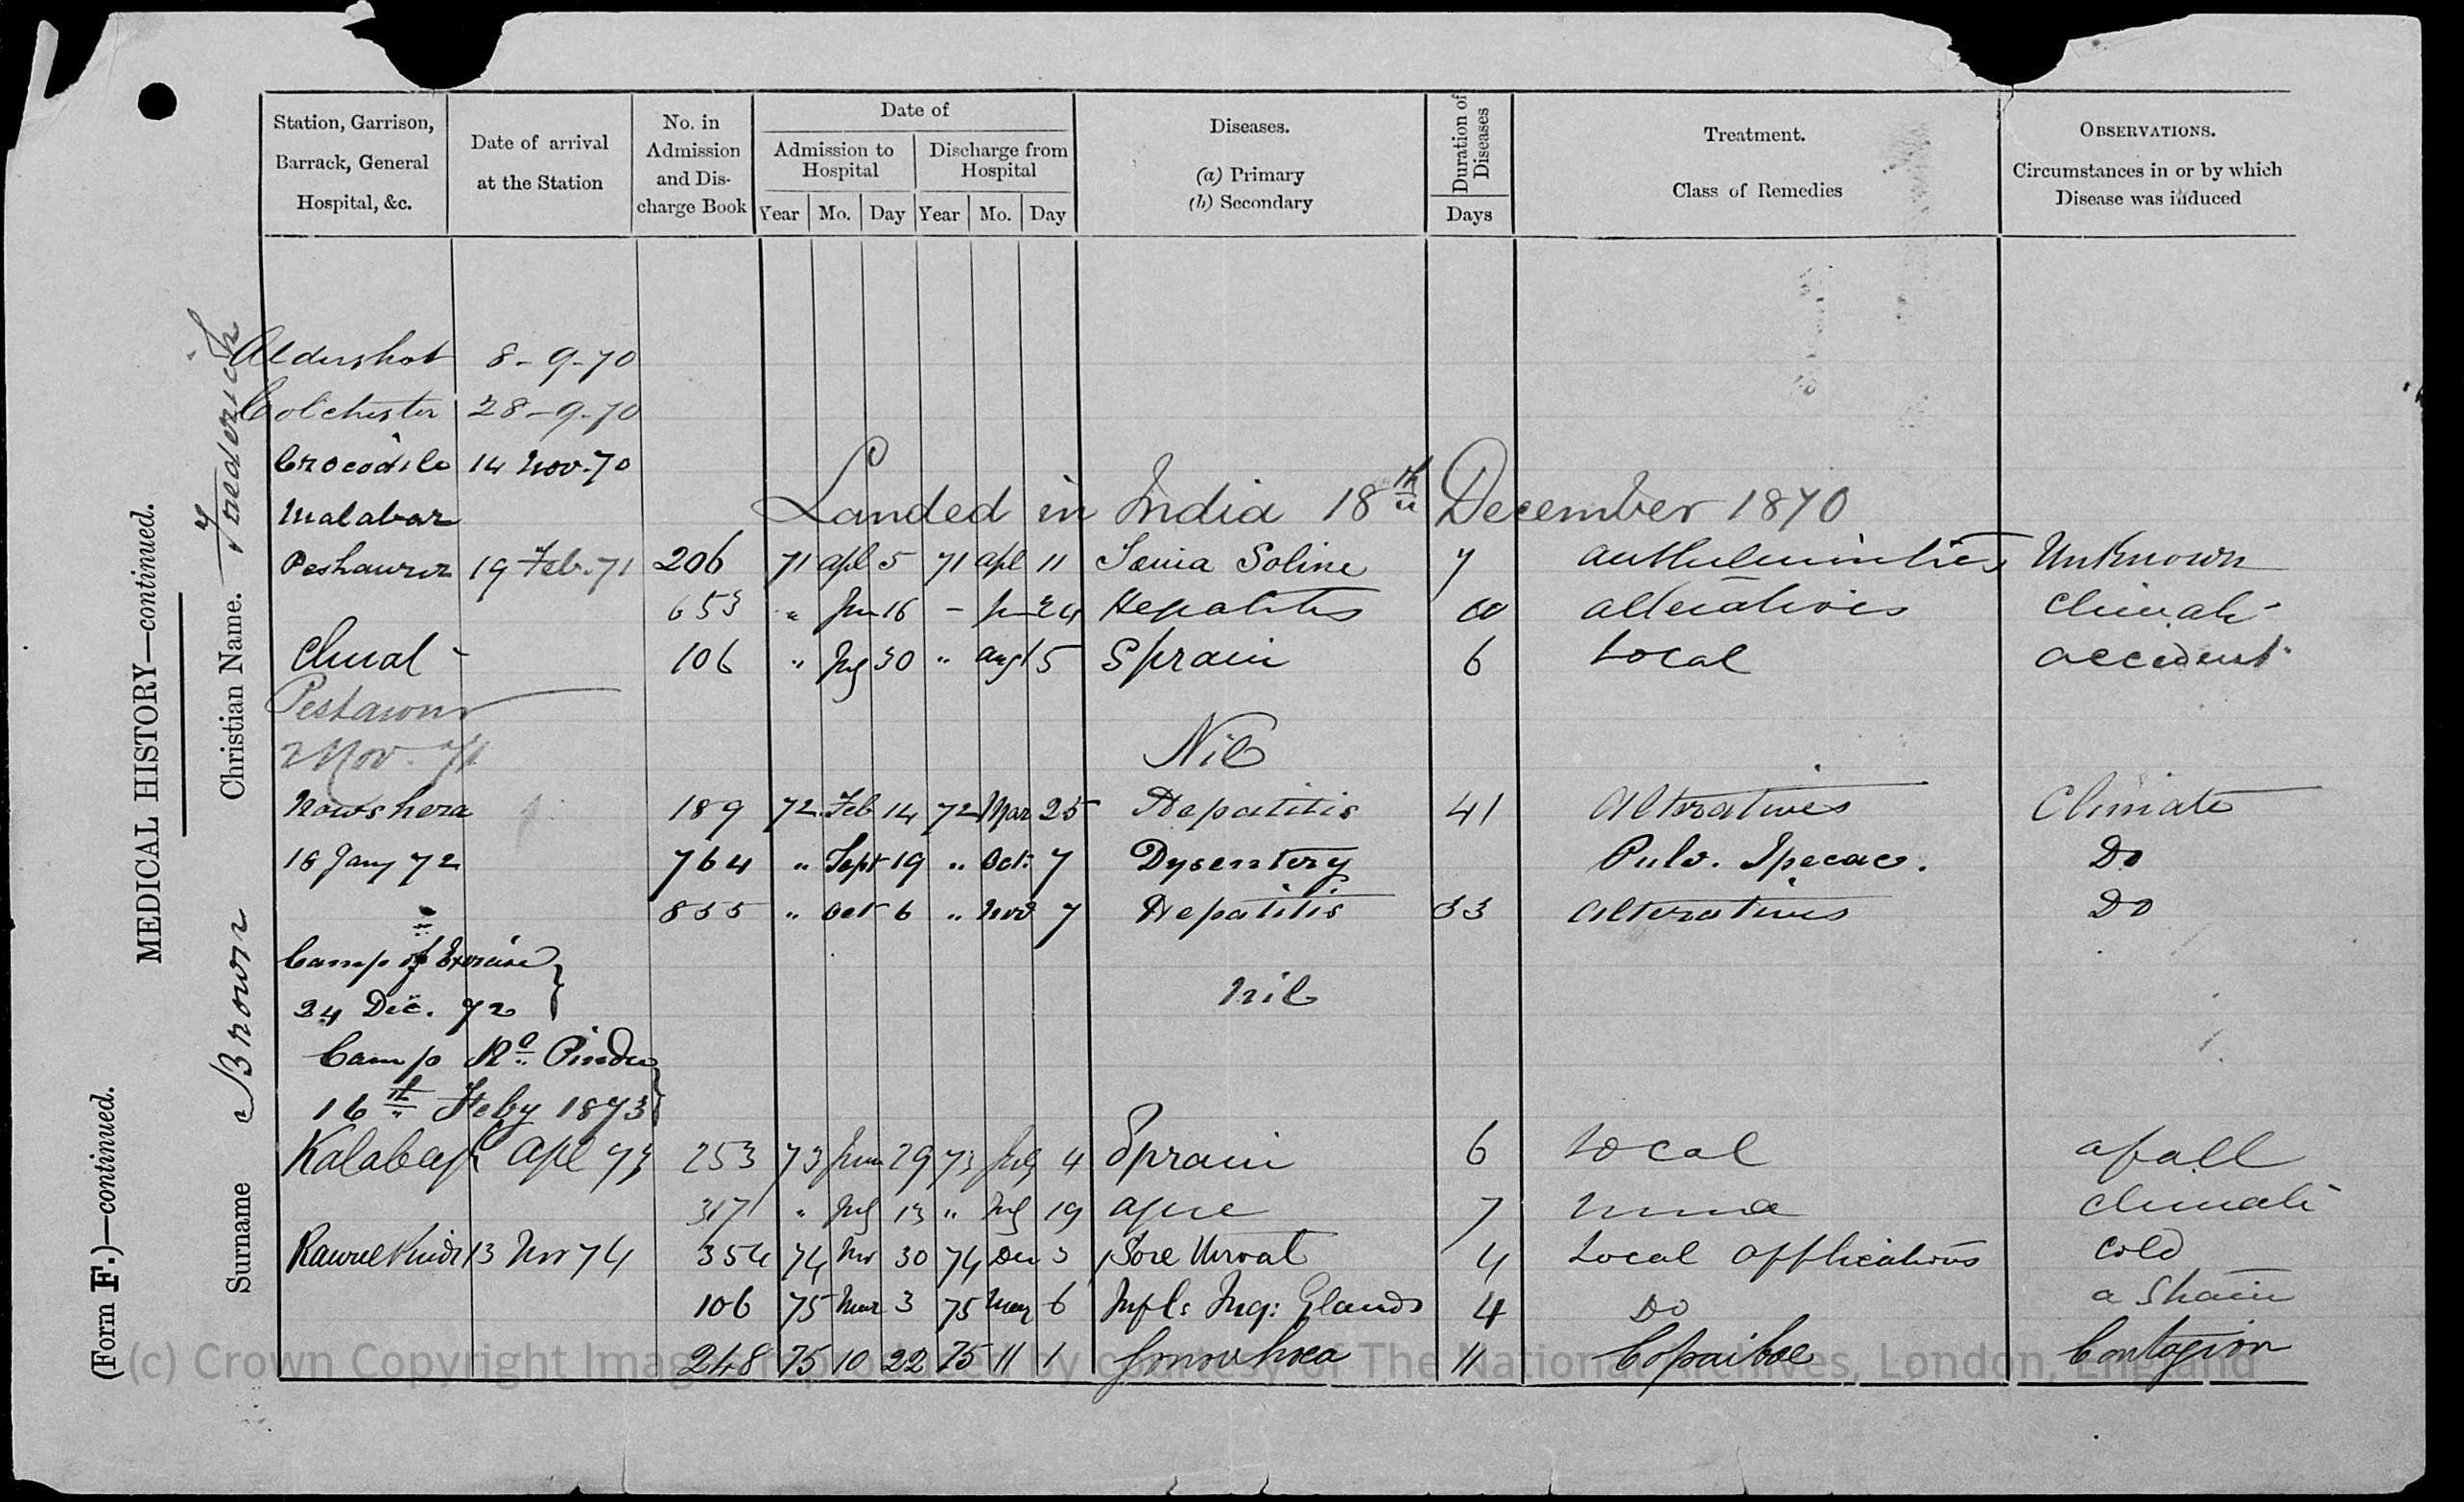 (Form F.)—continued.
MEDICAL HISTORY—continued.
Surname Brown Christian Name. Frederick
Station, Garrison, Barrack, General Hospital, &c.
Date of arrival at the Station
No. in Admission and Discharge Book
Date of
Admission to Hospital
Discharge from Hospital
Year Mo. Day Year Mo. Day
Diseases.
(a) Primary
(b) Secondary
Duration of Diseases
Days
Treatment.
Class of Remedies
OBSERVATIONS.
Circumstances in or by which Disease was induced
Aldershot 8-9-70
Colchester 28-9-70
Crocodile 14 Nov. 70
Malabar Landed in India 18th December 1870
Peshawur 19 Feb. 71 206 71 Apl 5 71 Apl 11 Soline 7 Anthelmintics Unknown
653 " Jun 16 - Jun Hepatitis Alteratives Climate
106 " July 30 " Augt 5 Sprain 6 Local accident
Peshawur
2 Nov. 71 Nil
Nowshera 189 72 Feb 14 72 Mar 25 Hepatitis 41 Alteratives Climate
18 Jany 72 764 " Sept 19 " Oct. 7 Dysentery Pulv. Ipecac. Do
" 855 " Oct 6 " Nov 7 Hepatitis 33 Alteratives Do
Camp of Exercise
24 Dec. 72 Nil
Camp Rl. Pindee
16th Feby 1873
Kalabagh Apl 73 253 73 June 29 73 July 4 Sprain 6 Local a fall
317 " July 13 " July 19 Ague 7 Climate
13 Nov 74 354 74 Nov 30 74 Dec 3 Sore throat 4 Local applications Cold
106 75 Mar 3 75 6 Infl: Ing: Glands 4 Do a Strain
248 75 10 22 75 11 1 Gonorrhoea 11 Copaibae Contagion
(c) Crown Copyright Images reproduced by courtesy of The National Archives, London, England